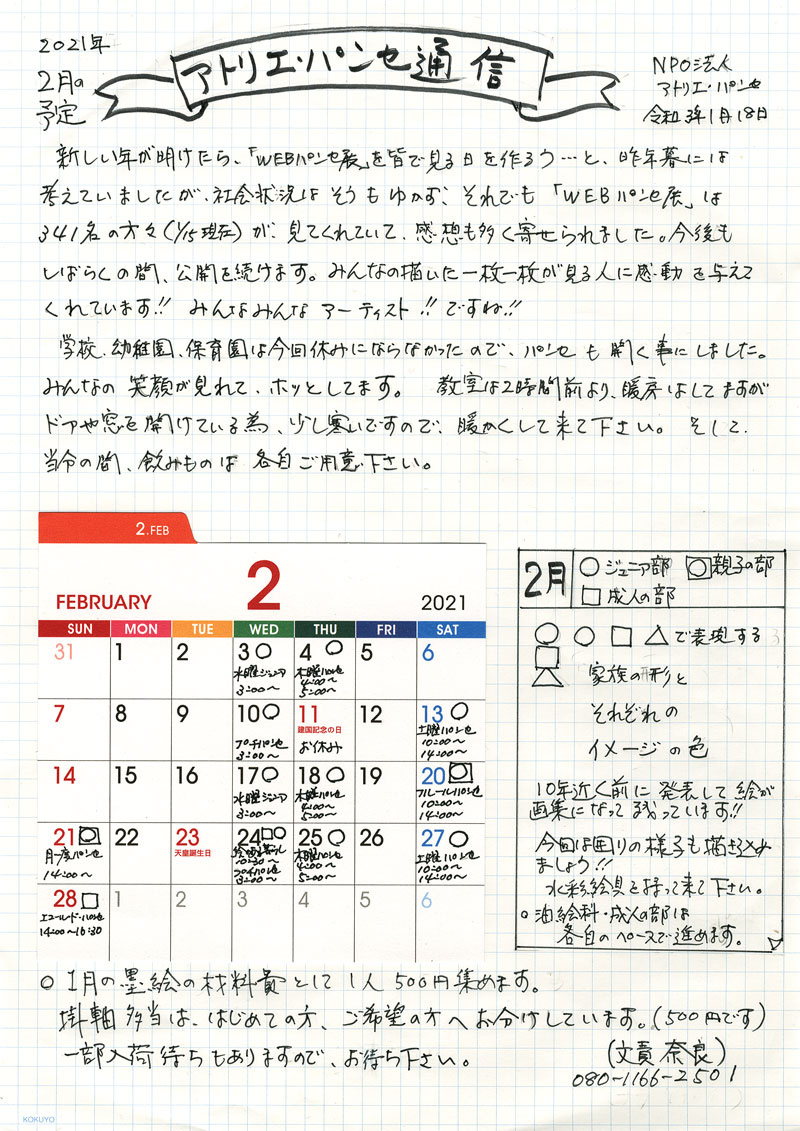 2021年
2月の
予定
アトリエ・パンセ通信
NPO法人
アトリエ・パンセ
令和3年1月18日
新しい年が明けたら、「WEBパンセ展」を皆で見る日を作ろう…と、昨年暮には
考えていましたが、社会状況はそうもゆかず、それでも「WEBパンセ展」は
341名の方々(1/15現在)が、見てくれていて、感想も多く寄せられました。今後も
しばらくの間、公開を続けます。みんなの描いた一枚一枚が見る人に感動を与えて
くれています!! みんなみんなアーティスト!!ですね!!
学校、幼稚園、保育園は今回休みにならなかったので、パンセも開く事にしました。
みんなの笑顔が見れて、ホッとしてます。 教室は2時間前より、暖房はしてますが
ドアや窓を開けている為、少し寒いですので、暖かくして来て下さい。そして、
当分の間、飲みものは各自ご用意下さい。
2.FEB
FEBRUARY 2 2021
SUN MON TUE WED THU FRI SAT
31 1 2 3○ 4○ 5 6
水曜ジュニア 木曜パンセ
3:00〜 4:00〜
5:00〜
7 8 9 10○ 11 12 13○
建国記念の日 土曜パンセ
プチパンセ お休み 10:00〜
3:00〜 14:00〜
14 15 16 17○ 18○ 19 20
水曜ジュニア 木曜パンセ フルールパンセ
3:00〜 4:00〜 10:00〜
5:00〜 14:00〜
21 22 23 24□○ 25○ 26 27○
月一度パンセ 天皇誕生日 木曜パンセ 土曜パンセ
14:00〜 10:30〜 4:00〜 10:00〜
プチパンセ 5:00〜 14:00〜
3:00〜
28□ 1 2 3 4 5 6
エコールド・パンセ
14:00〜16:30
2月 ○ジュニア部 親子の部
□成人の部
○ ○ □ △で表現する
家族の形と
それぞれの
イメージの色
10年近く前に発表して絵が
画集になって残っています!!
今回は周りの様子も描き込み
ましょう!!
水彩絵具を持って来て下さい。
○油絵科・成人の部は
各自のペースで進めます。
○1月の墨絵の材料費として1人500円集めます。
掛軸多当は、はじめての方、ご希望の方へお分けしています。(500円です)
一部入荷待ちもありますので、お待ち下さい。
(文責 奈良)
080-1166-2501
KOKUYO